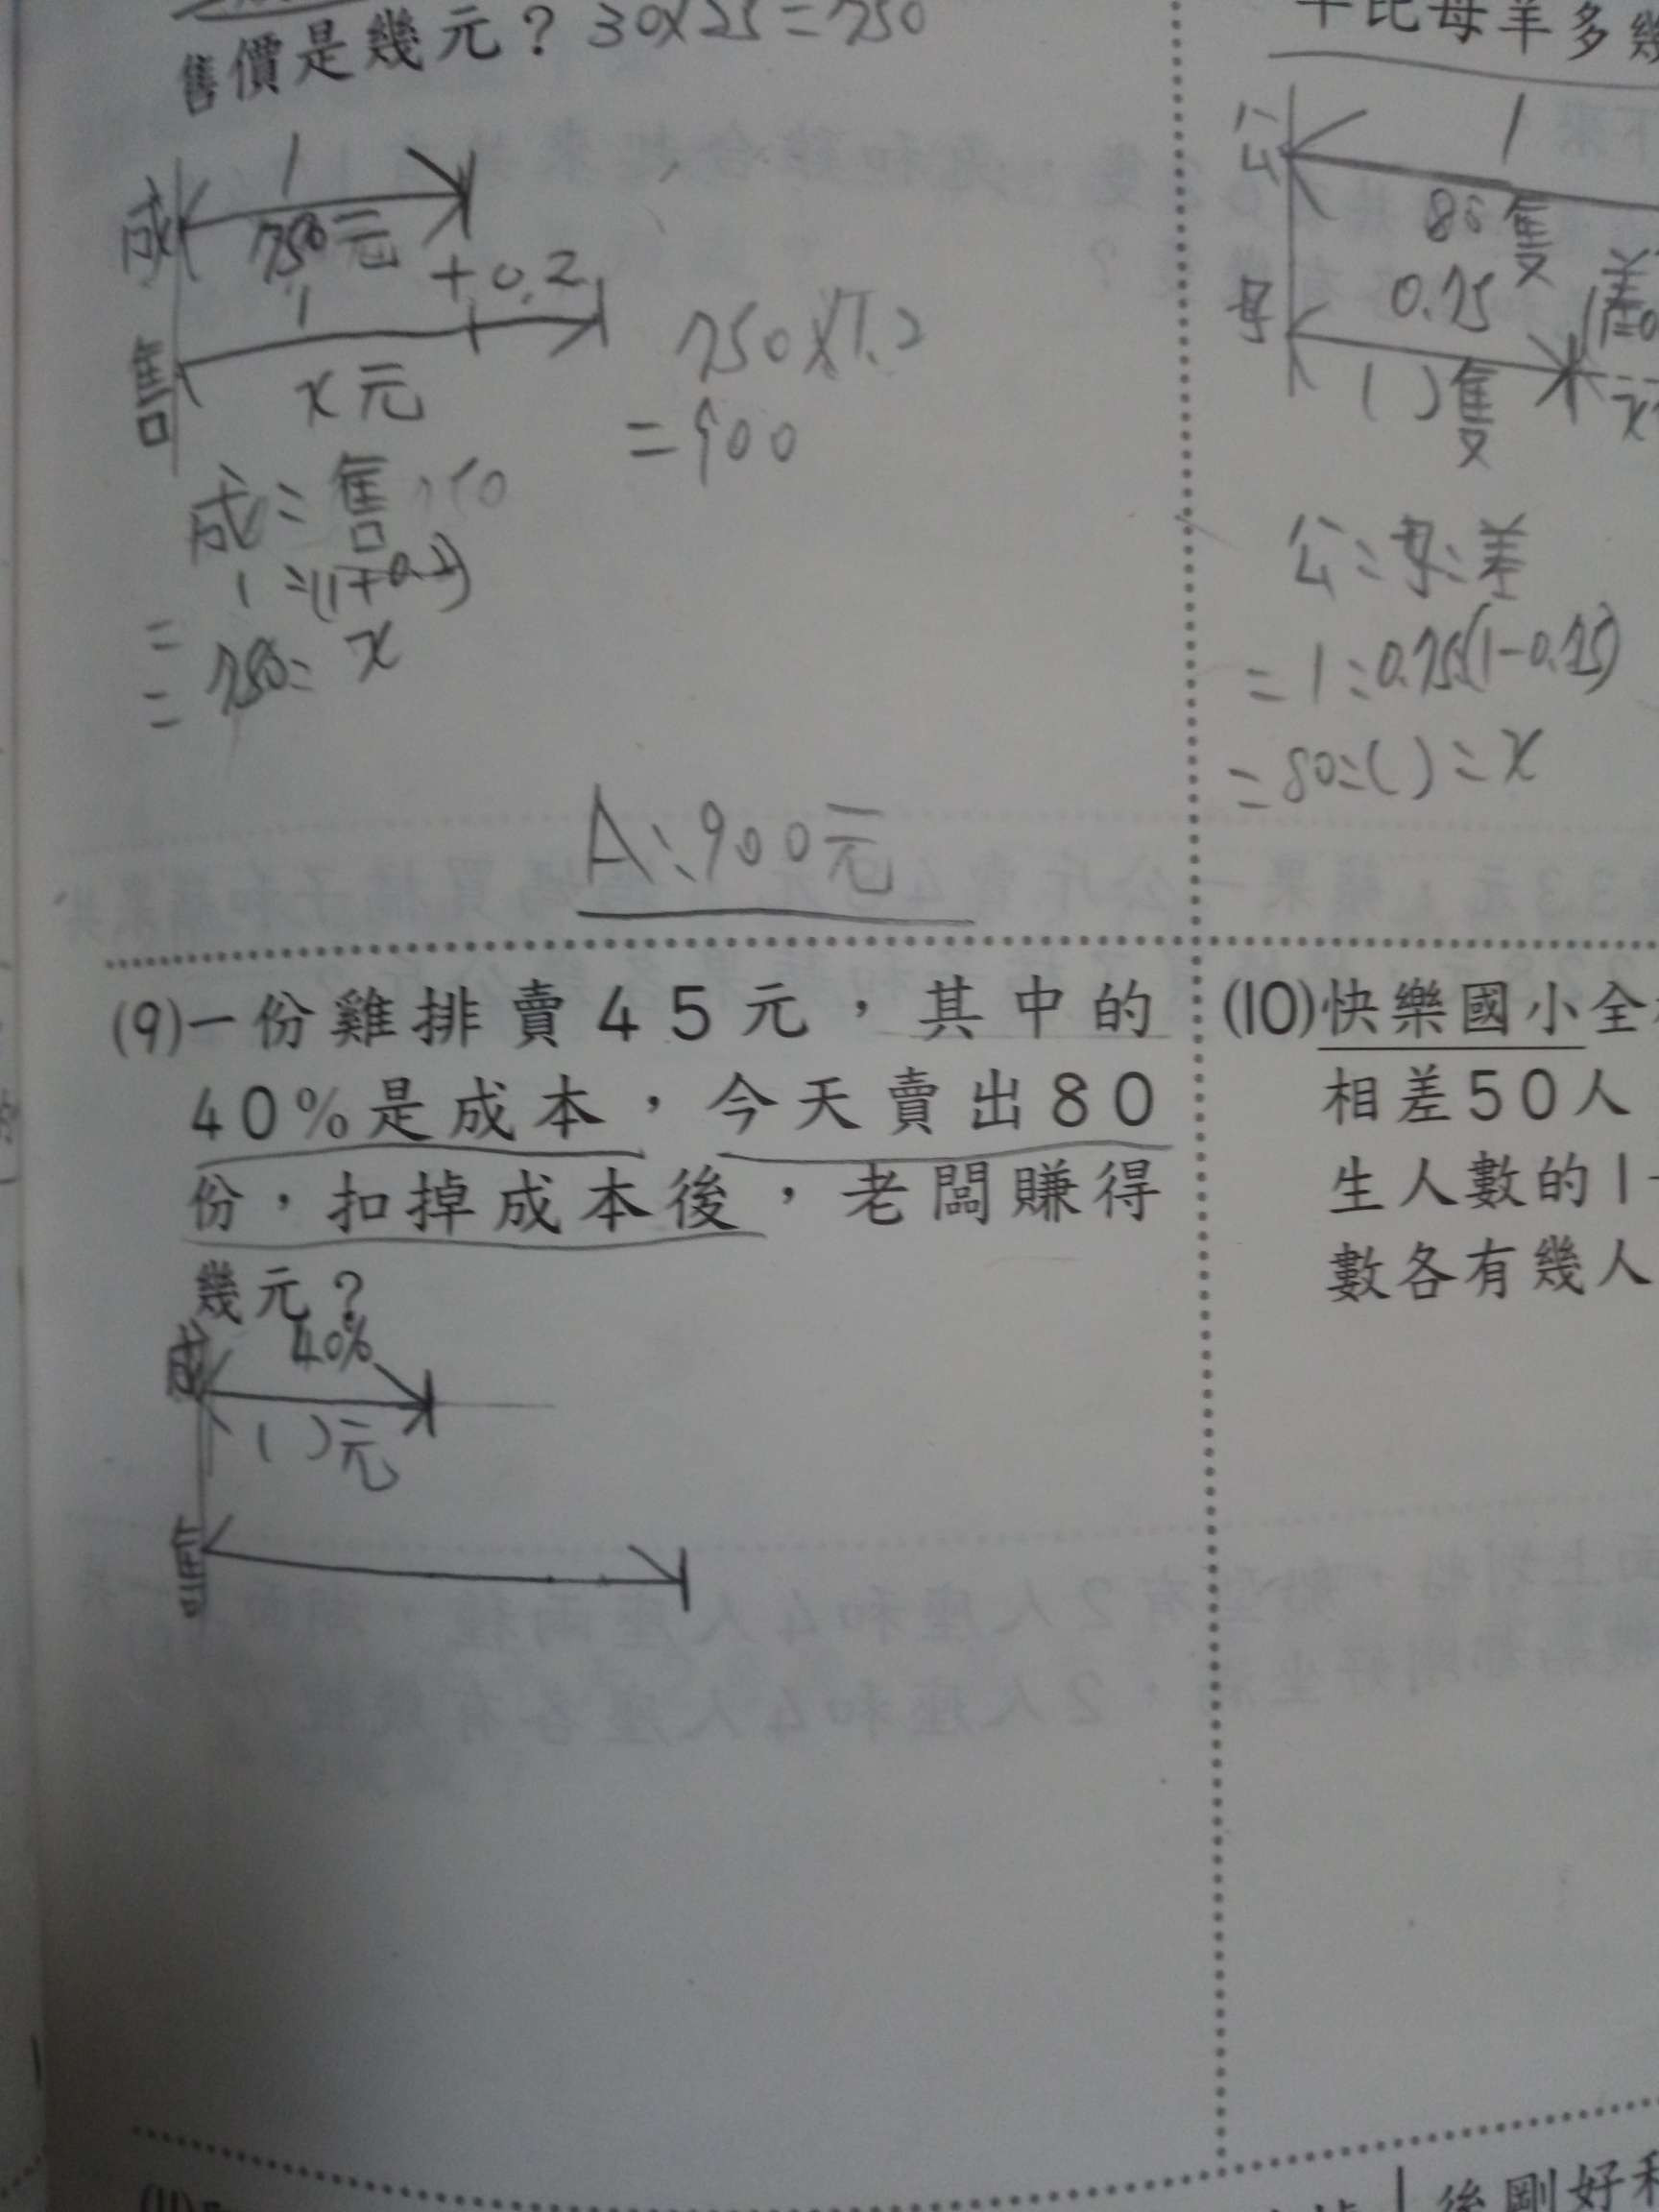 售價是幾元？ 30×25=750
成 1
750元
+0.2
售 1
x元
750×1.2
=900
成:售
1:(1+0.2)
=
= 750:x
A:900元
羊比母羊多幾
公 1
80隻
母 0.75 差
( )隻
x
公:母:差
=1:0.75:(1-0.75)
=80:( ):x
(9)一份雞排賣45元，其中的
40%是成本，今天賣出80
份，扣掉成本後，老闆賺得
幾元？
成 40%
( )元
售
(10)快樂國小全
相差50人
生人數的1
數各有幾人
(11)
後剛好